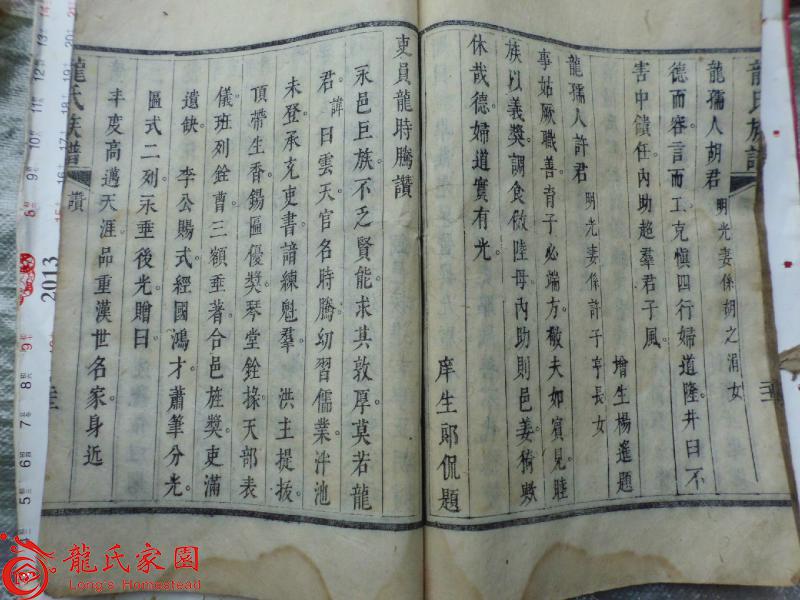 龍氏族譜
龍孺人胡君 明光妻係胡之涓女
德而容言而工克慎四行婦道隆井曰不
害中饋任內助超羣君子風
增生楊進題
龍孺人許君 明光妻係許子亨長女
事姑厥職善育子必端方敬夫如賓見睦
族以義獎調食倣陸母內助則邑姜猗歟
休哉德婦道實有光
庠生郎侃題
吏員龍時騰讚
永邑巨族不乏賢能求其敦厚莫若龍
君諱曰雲天官名時騰幼習儒業泮池
未登承充吏書諳練魁羣 洪主提拔
頂帶生香錫匾優獎琴堂銓掾天部表
儀班列銓曹三額垂著合邑旌獎吏滿
遺缺 李公賜式經國鴻才蕭筆分光
匾式二列永垂後光贈曰
丰度高邁天涯品重漢世名家身近
龍氏族譜 讚
2013
龍氏家園
Long's Homestead